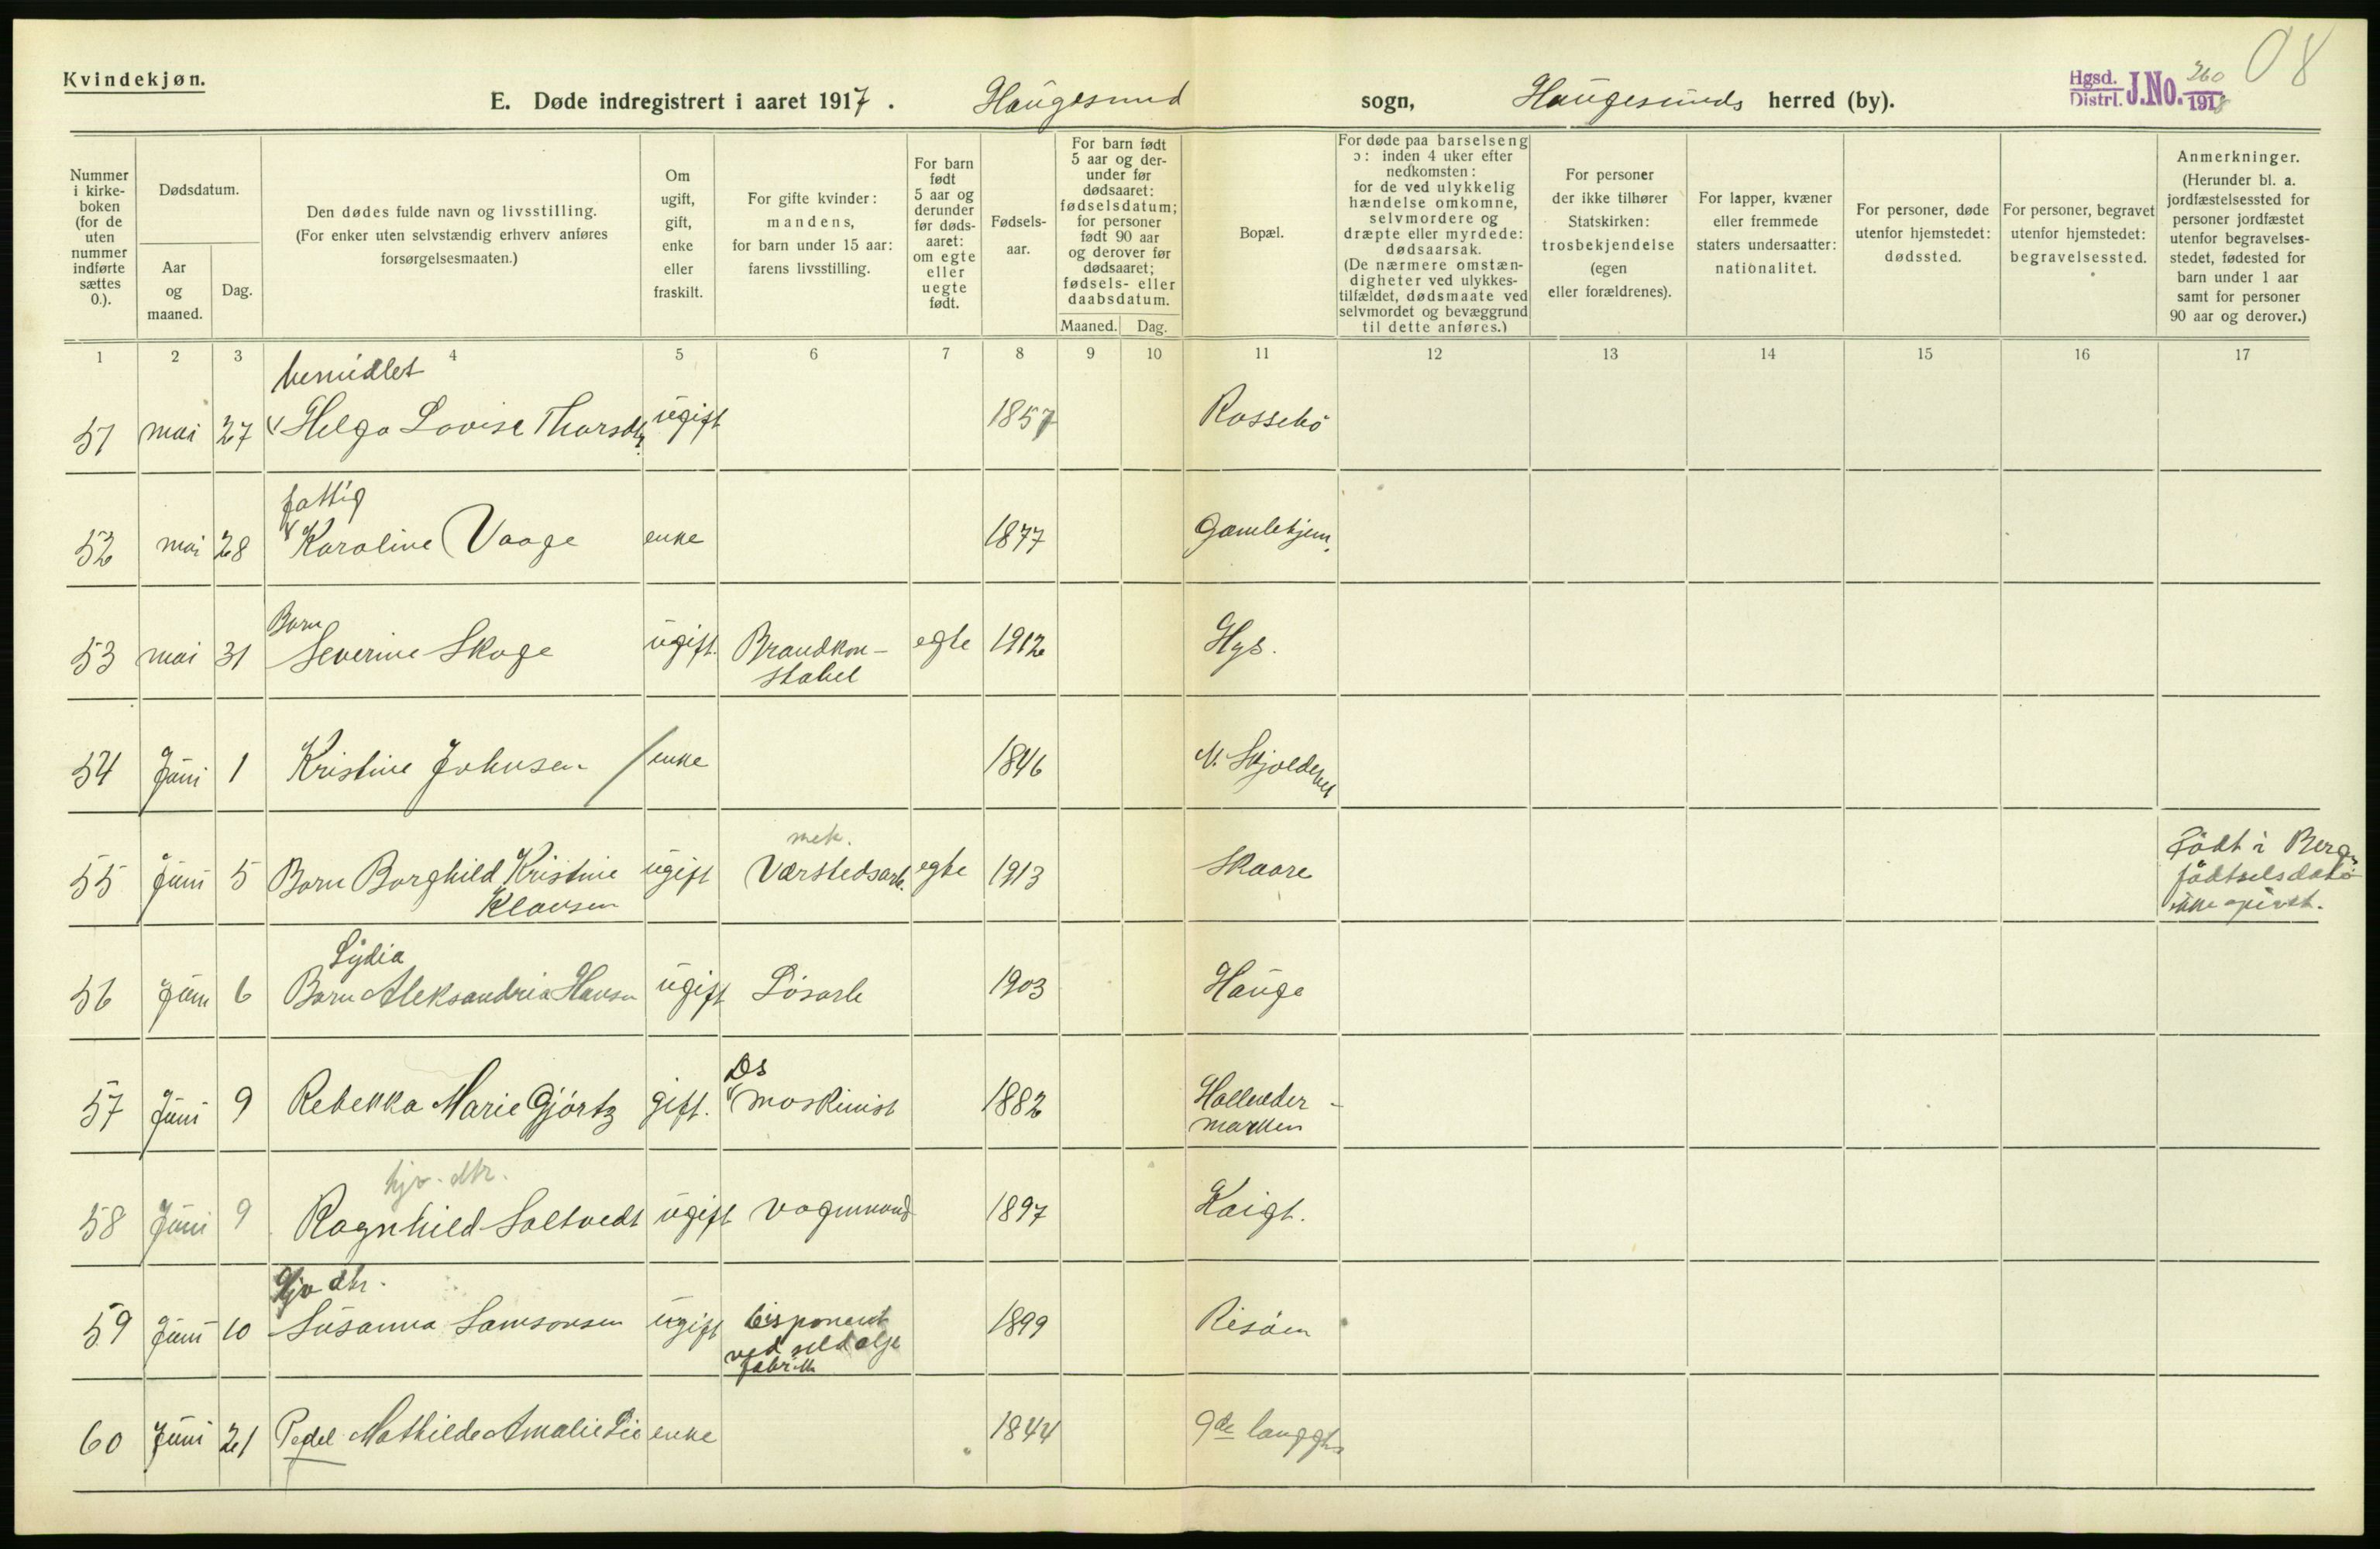 Kvindekjøn.
E. Døde indregistrert i aaret 1917. Haugesund sogn, Haugesunds herred (by).
Hgsd. Distrl. J.No. 260 1918
08
Nummer i kirkeboken (for de uten nummer indførte sættes 0.).
Dødsdatum.
Aar og maaned.
Dag.
Den dødes fulde navn og livsstilling. (For enker uten selvstændig erhverv anføres forsørgelsesmaaten.)
Om ugift, gift, enke eller fraskilt.
For gifte kvinder: mandens, for barn under 15 aar: farens livsstilling.
For barn født 5 aar og derunder før dødsaaret: om egte eller uegte født.
Fødselsaar.
For barn født 5 aar og derunder før dødsaaret: fødselsdatum; for personer født 90 aar og derover før dødsaaret; fødsels- eller daabsdatum.
Maaned. Dag.
Bopæl.
For døde paa barselseng ɔ: inden 4 uker efter nedkomsten: for de ved ulykkelig hændelse omkomne, selvmordere og dræpte eller myrdede: dødsaarsak. (De nærmere omstændigheter ved ulykkestilfældet, dødsmaate ved selvmordet og bevæggrund til dette anføres.)
For personer der ikke tilhører Statskirken: trosbekjendelse (egen eller forældrenes).
For lapper, kvæner eller fremmede staters undersaatter: nationalitet.
For personer, døde utenfor hjemstedet: dødssted.
For personer, begravet utenfor hjemstedet: begravelsessted.
Anmerkninger. (Herunder bl. a. jordfæstelsessted for personer jordfæstet utenfor begravelsesstedet, fødested for barn under 1 aar samt for personer 90 aar og derover.)
1 2 3 4 5 6 7 8 9 10 11 12 13 14 15 16 17
bemidlet
51 mai 27 Helga Lovise Thorsdtr. ugift 1857 Rossebö
fattig
52 mai 28 Karoline Vaage enke 1877 Gamlehjem.
Barn
53 mai 31 Severine Skoge ugift. Brandkon- egte 1912 Hgs.
stabel
54 Juni 1 Kristine Johnsen / enke 1846 N. Skjoldehet
mek.
55 Juni 5 Barn Borghild Kristine ugift Værstedsarb. egte 1913 Skaare Födt i Berg
Klausen födtselsdato
ikke
Lydia
56 Juni 6 Barn Aleksandria Hansen ugift Lösarb 1903 Hauge
Ds
57 Juni 9 Rebekka Marie Gjörtz gift. Maskinist 1882 Hollender-
marken
hjv. dtr.
58 Juni 9 Ragnhild Saltvedt ugift Vognmand 1897 Kaigt.
Hjv dtr.
59 Juni 10 Susanna Samsonsen ugift Disponent 1899 Risöen
ved sildolje
fabrik
60 Juni 21 Pedel Mathilde Amalie Lie enke 1844 9de langgt.